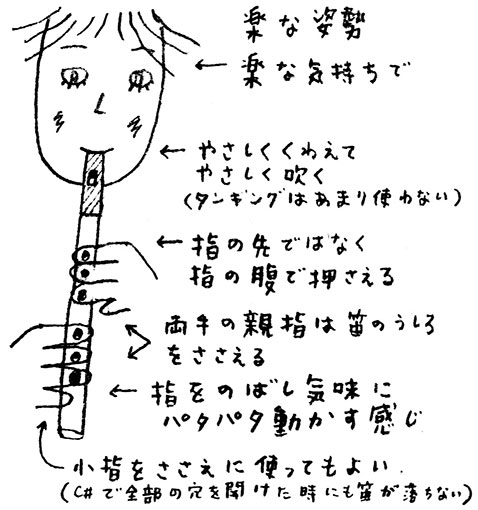 楽な姿勢
楽な気持ちで
やさしくくわえて
やさしく吹く
(タンギングはあまり使わない)
指の先ではなく
指の腹で押さえる
両手の親指は笛のうしろ
をささえる
指をのばし気味に
パタパタ動かす感じ
小指をささえに使ってもよい.
(C#で全部の穴を開けた時にも笛が落ちない)